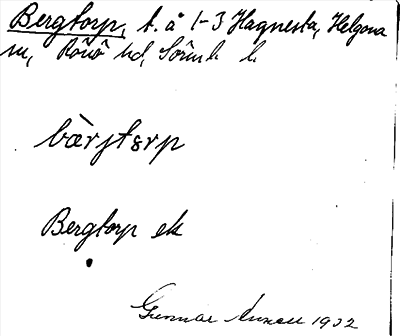 Bergtorp, t. å 1-3 Hagnesta, Helgona
sn, Rönö hd, Sörml. l.
bàrjtorp
Bergtorp ek
Gunnar 1932